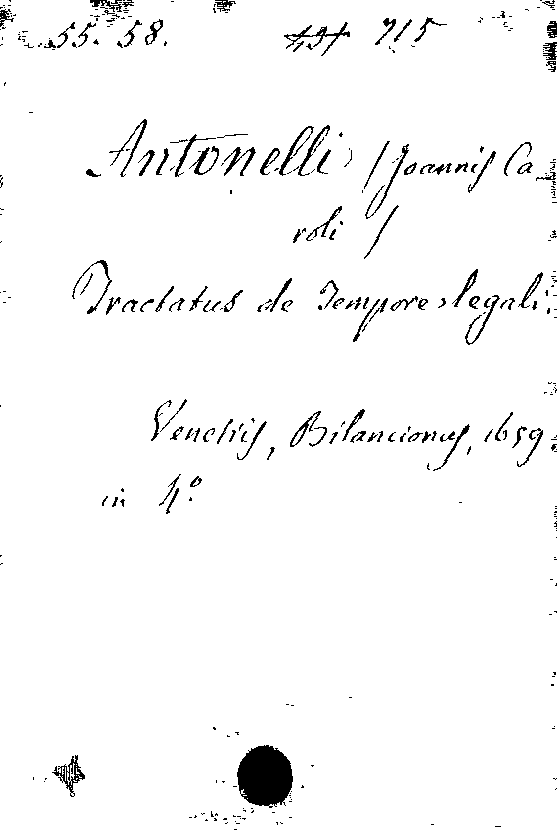 55. 58. 715
Antonelli /Joannis Ca
roli /
Tractatus de Tempore legali.
Venetiis, Bilancionus, 1659.
in 4º